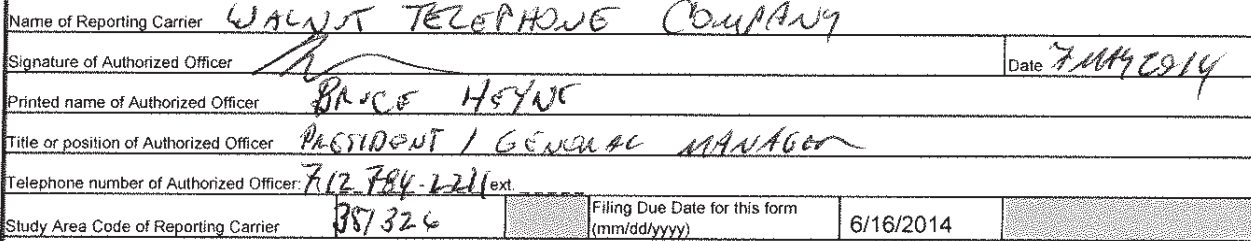 Name of Reporting Carrier WALNUT TELEPHONE COMPANY
Signature of Authorized Officer Date 7 MAY 2014
Printed name of Authorized Officer BRUCE HEYNE
Title or position of Authorized Officer PRESIDENT / GENERAL MANAGER
Telephone number of Authorized Officer: 712 784-2211 ext.
Study Area Code of Reporting Carrier 351326 Filing Due Date for this form (mm/dd/yyyy) 6/16/2014